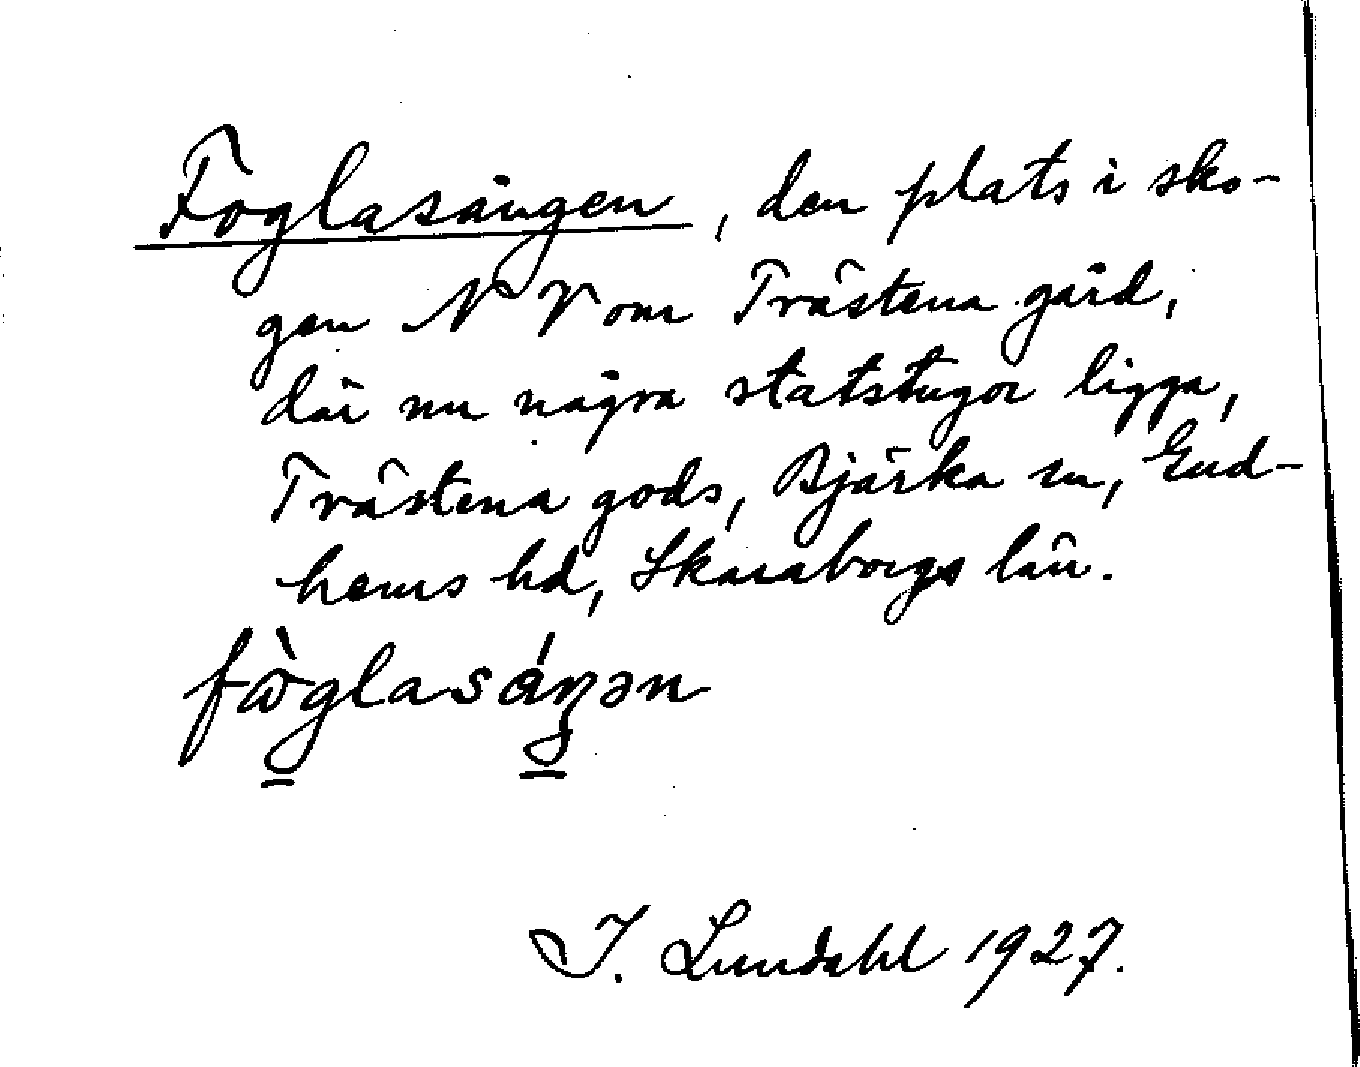 Foglasången, den plats i sko-
gen N V om Trästena gård,
där nu några statstugor ligga,
Trästena gods, Bjärka sn, Gud-
hems hd, Skaraborgs län.
fɷ̀glasáŋən
I. Lundahl 1927.